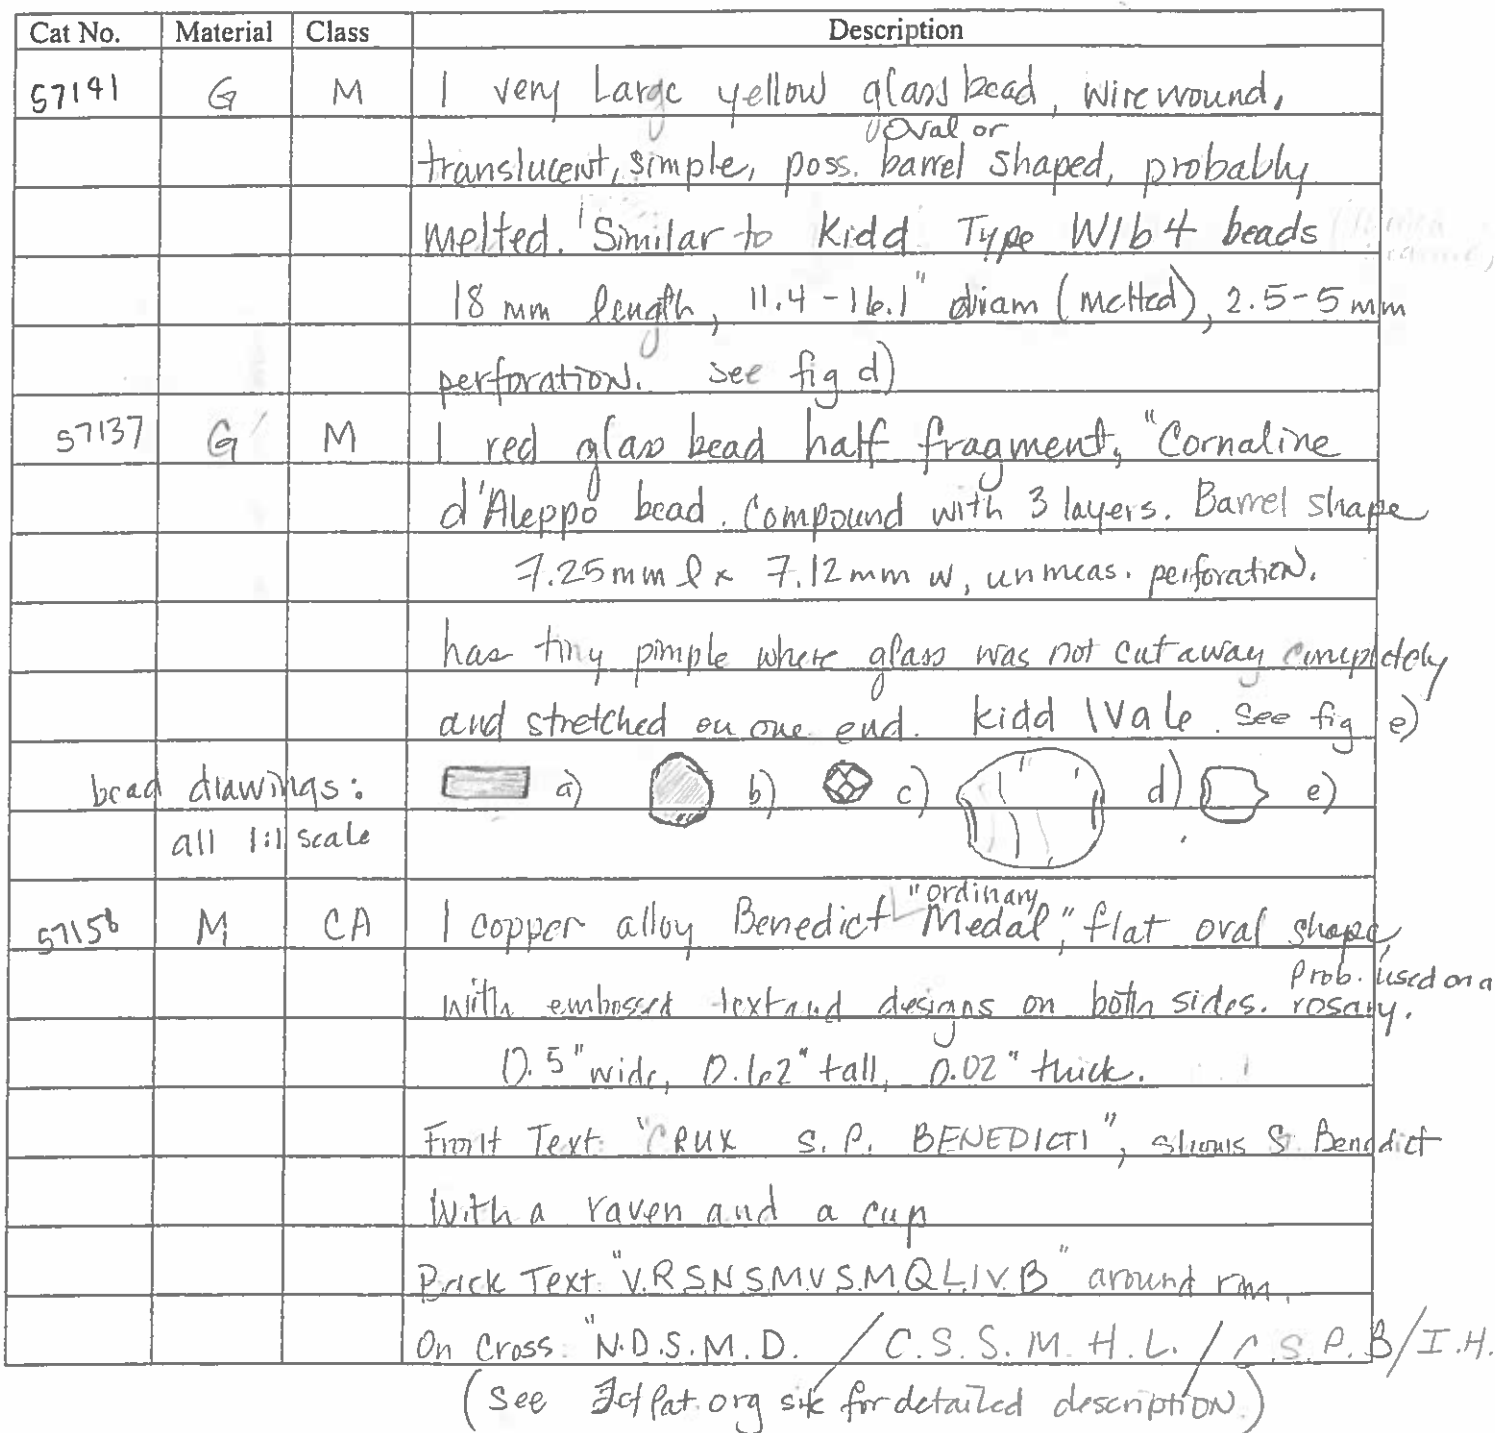 Cat No. Material Class Description
57141 G M 1 very Large yellow glass bead, wire wound,
oval or
translucent, simple, poss. barrel shaped, probably
melted. Similar to Kidd Type W1b4 beads
18 mm length, 11.4-16.1" diam (melted), 2.5-5 mm
perforation. See fig d)
57137 G M 1 red glass bead half fragment, "Cornaline
d'Aleppo bead. Compound with 3 layers. Barrel shape
7.25mm l x 7.12mm w, unmeas. perforation.
has tiny pimple where glass was not cut away completely
and stretched on one end. Kidd IVa6. See fig e)
bead drawings: a) b) c) d) e)
all 1:1 scale
"ordinary
57158 M CA 1 copper alloy Benedict Medal", flat oval shape,
Prob. used on a
with embossed text and designs on both sides. rosary.
0.5" wide, 0.62" tall, 0.02" thick.
Front Text "CRUX S. P. BENEDICTI", shows S. Benedict
With a raven and a cup
Back Text "V.R.S.N.S.M.V.S.M.Q.L.I.V.B" around rim
On Cross "N.D.S.M.D. / C.S.S.M.H.L. / C.S.P.B / I.H.
(See site for detailed description.)